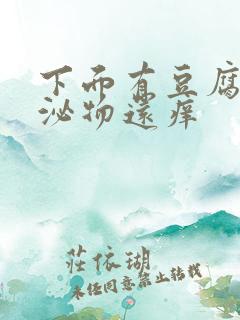 下而有豆腐
泌物还痒
莊依瑚
未经同意禁止转载